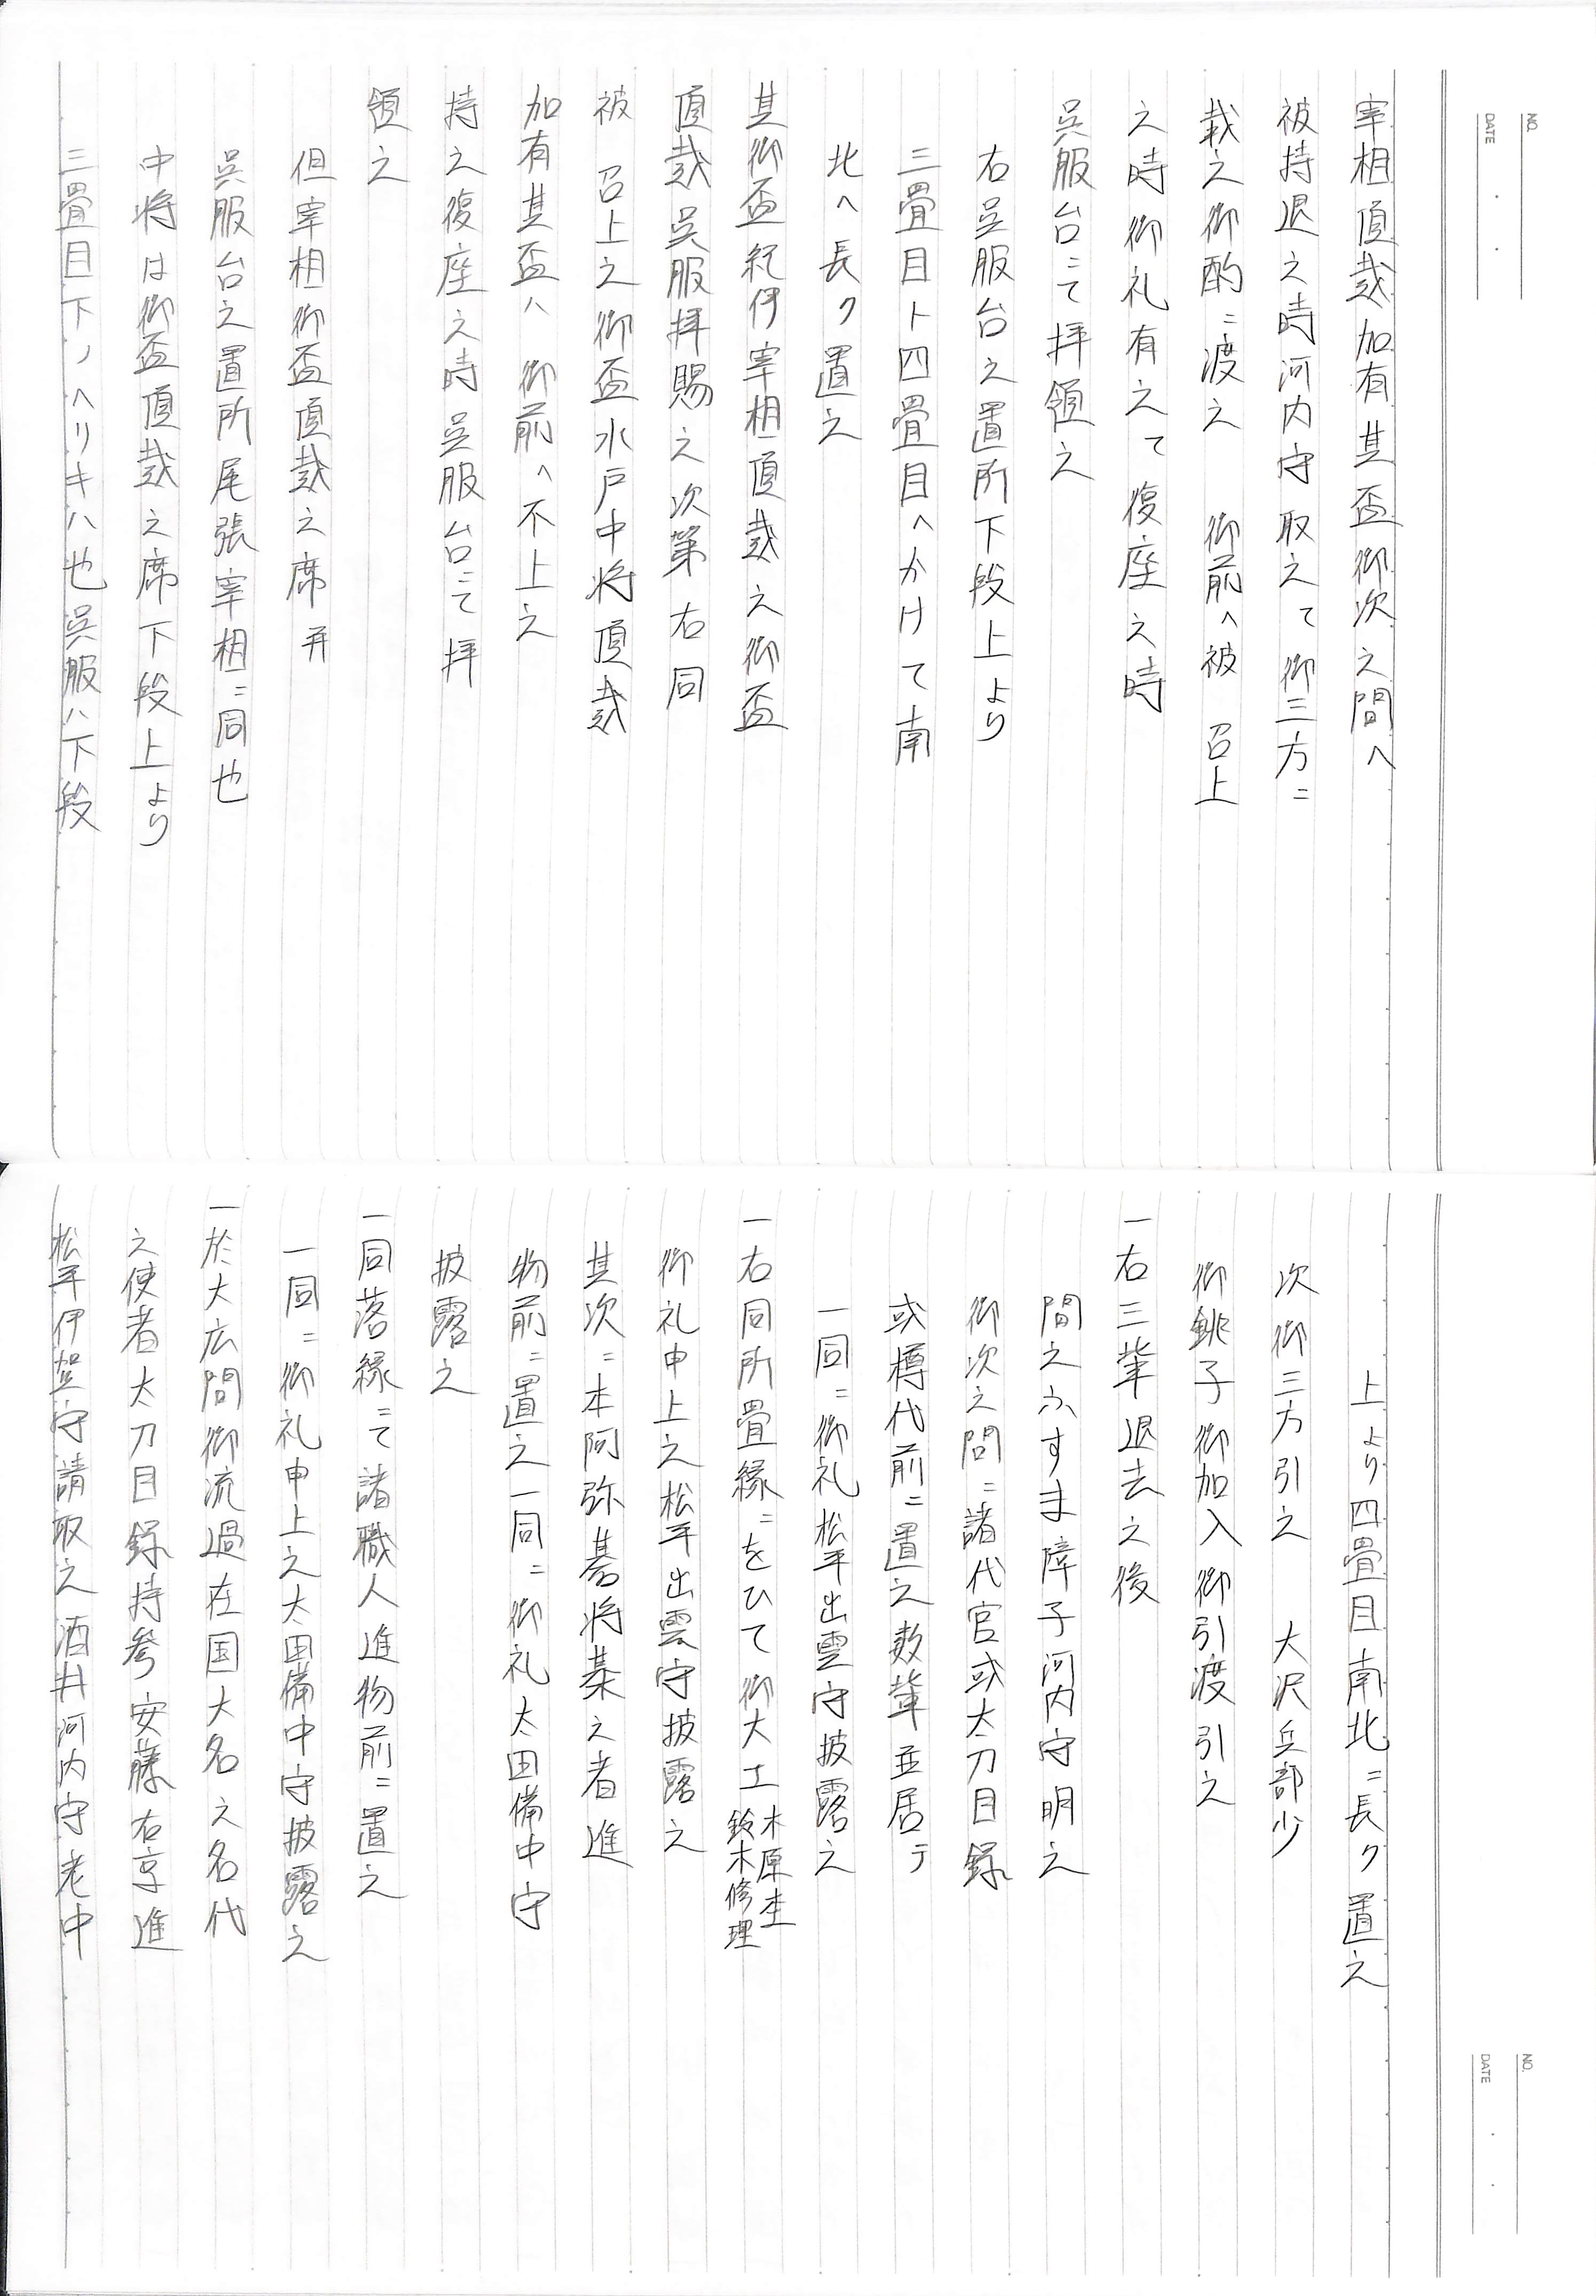 NO.
DATE
宰相頂戴加有其盃御次之間へ
被持退之時河内守取之て御三方ニ
載之御酌ニ渡之　御前へ被　召上
之時御礼有之て復座之時
呉服台ニて拝領之
右呉服台之置所下段上より
三畳目ト四畳目へかけて南
北へ長ク置之
其御盃紀伊宰相頂戴之御盃
頂戴呉服拝賜之次第右同
被　召上之御盃水戸中将頂戴
加有其盃ハ　御前へ不上之
持之復座之時呉服台ニて拝
領之
但宰相御盃頂戴之席并
呉服台之置所尾張宰相ニ同也
中将は御盃頂戴之席下段上より
三畳目下ノヘリキハ也呉服ハ下段
NO.
DATE
上より四畳目南北ニ長ク置之
次御三方引之　大沢兵部少
御銚子御加入御引渡引之
一右三輩退去之後
間之ふすま障子河内守明之
御次之間ニ諸代官或太刀目録
或樽代前ニ置之数輩並居テ
一同ニ御礼松平出雲守披露之
一右同所畳縁ニをひて御大工木原杢鈴木修理
御礼申上之松平出雲守披露之
其次ニ本阿弥碁将棊之者進
物前ニ置之一同ニ御礼太田備中守
披露之
一同落縁ニて諸職人進物前ニ置之
一同ニ御礼申上之太田備中守披露之
一於大広間御流過在国大名之名代
之使者太刀目録持参安藤右京進
松平伊賀守請取之酒井河内守老中